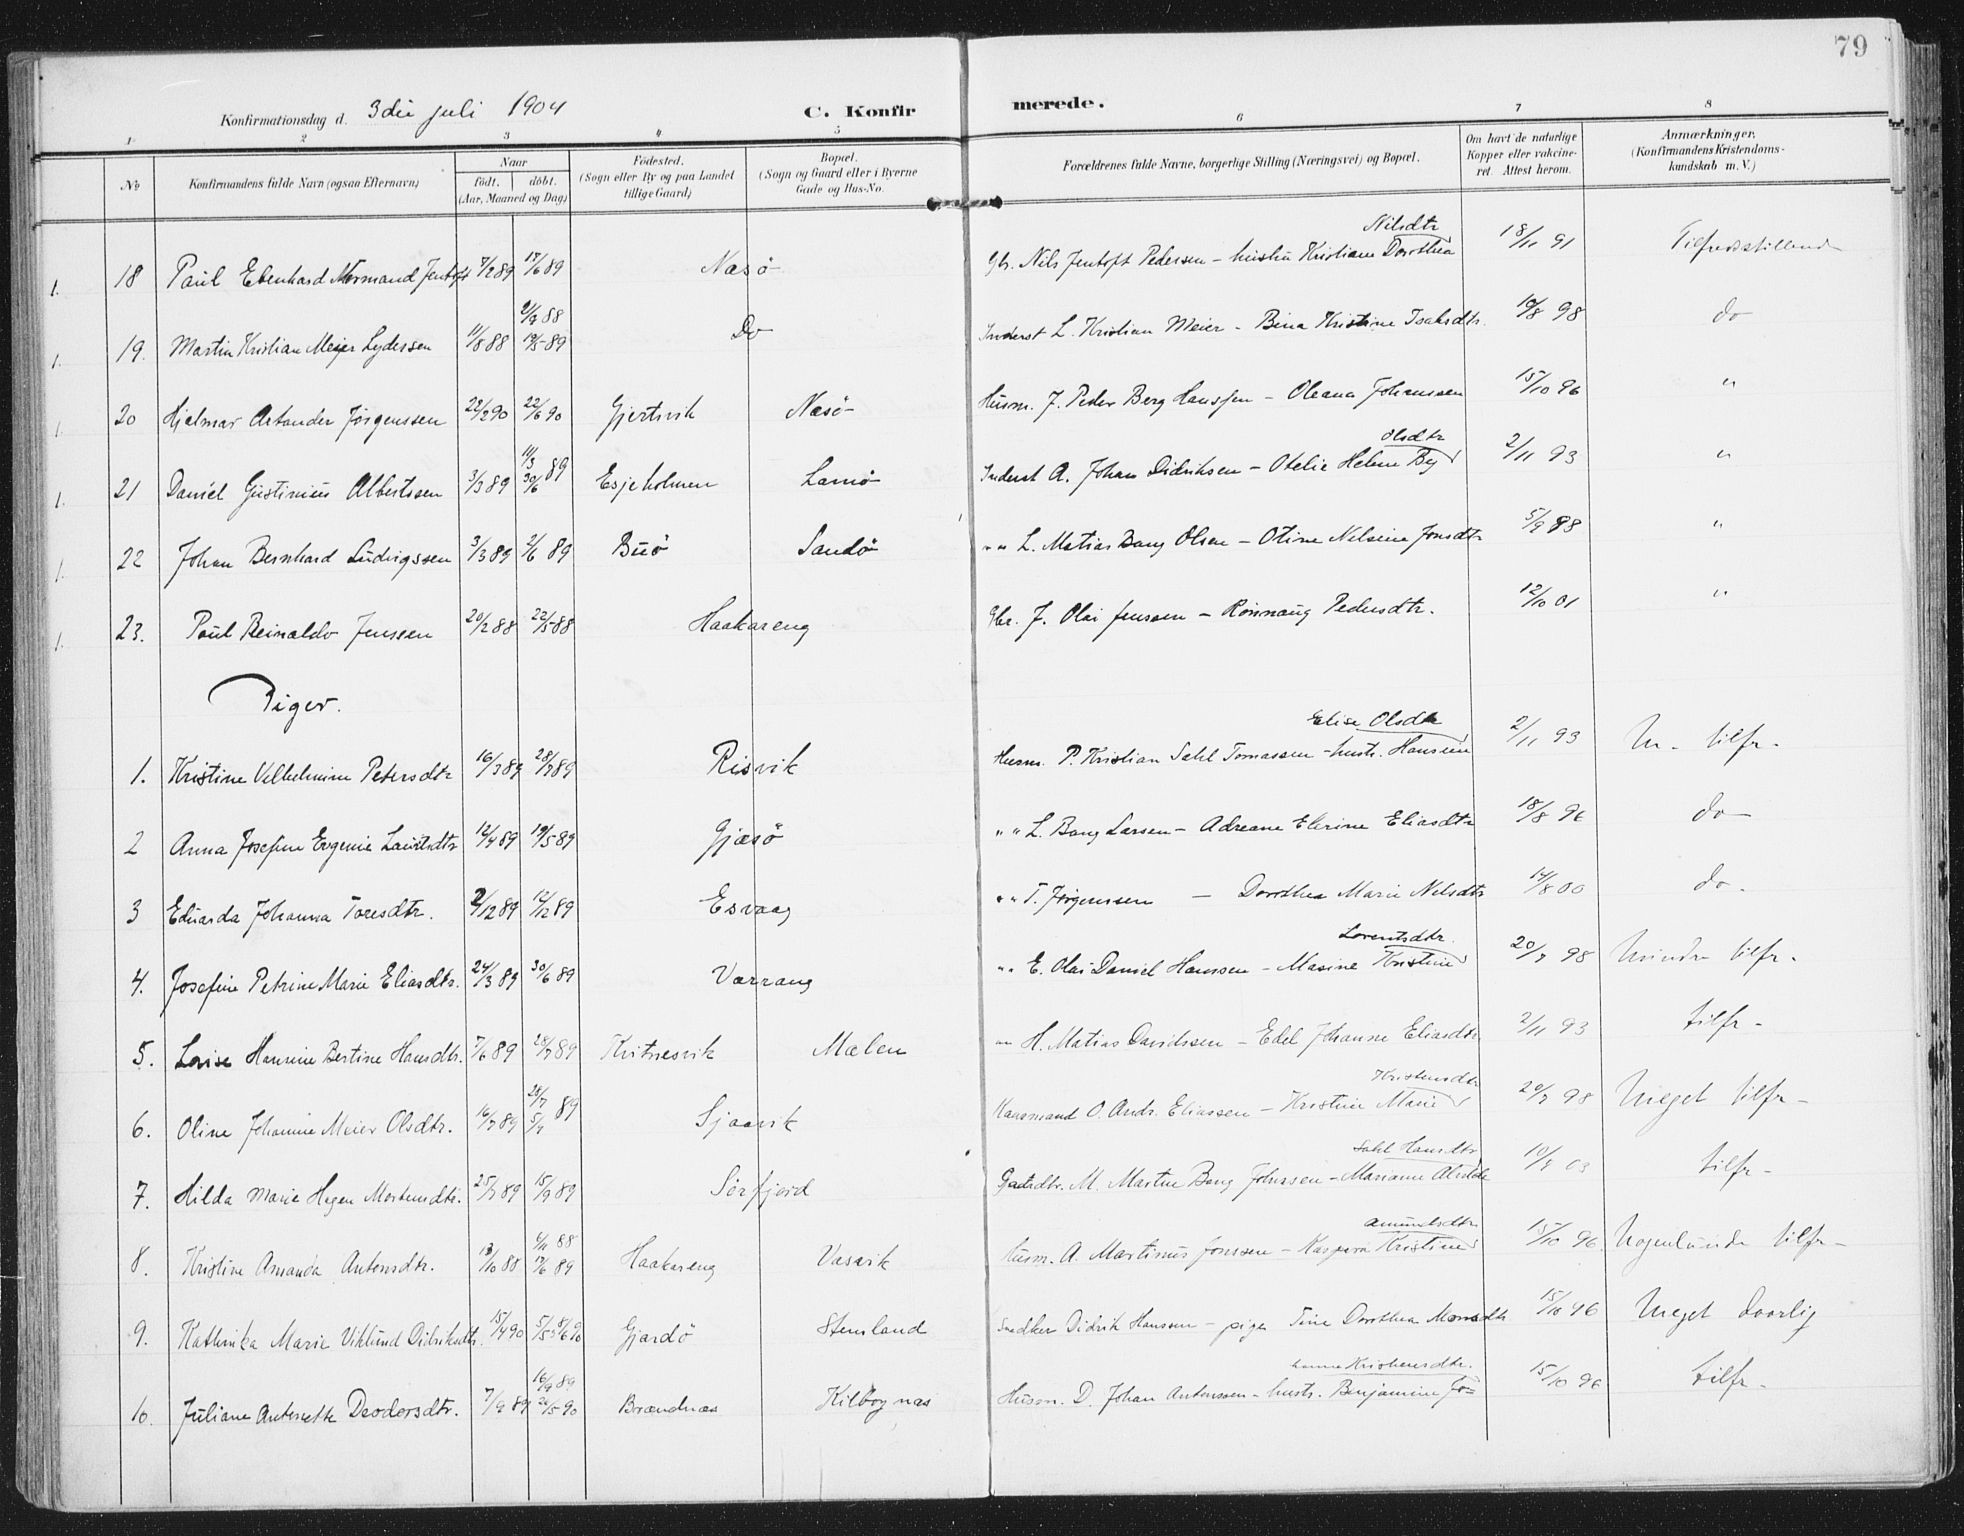 79
Konfirmationsdag d. 3die juli 1904 C. Konfirmerede.
1 2 3 4 5 6 7 8
No Konfirmandens fulde Navn (ogsaa Efternavn) Naar født. døbt. (Aar, Maaned og Dag) Fødested. (Sogn eller By og paa Landet tillige Gaard) Bopæl. (Sogn og Gaard eller i Byerne Gade og Hus-No. Forældrenes fulde Navne, borgerlige Stilling (Næringsvei) og Bopæl. Om havt de naturlige Kopper eller vakcineret. Attest herom. Anmærkninger. (Konfirmandens Kristendomskundskab m. V.)
1. 18 Paul Ebenhard Normand Jentoft 7/2 89 17/6 89 Næsø Gbr. Nils Jentoft Pedersen - hustru Kristiane Dorothea Nilsdtr 18/11 91 Tilfredsstillende
1. 19. Martin Kristian Meyer Lydersen 11/8 88 19/5 89 Do Inderst L. Kristian Meier - Bina Kristine Isaksdtr. 10/8 98 do
1. 20 Hjalmar Artander Jørgenssen 22/2 90 22/6 90 Gjertsvik Næsø Husm. J. Peder Berg Hanssen - Oleana Johanssen 15/10 96 "
1. 21 Daniel Gustinius Albertssen 3/3 89 11/3 30/6 89 Esjeholmen Lamø Inderst A. Johan Didriksen - Otelie Helene By Olsdtr 2/11 93 "
1. 22 Johan Bernhard Ludvigssen 3/3 89 2/6 89 Buø Sandø " " L. Matias Bang Olsen - Otine Nelsine Jonsdtr 5/9 88 "
1. 23. Paul Reinaldo Jenssen 20/2 88 22/5 88 Haakareng Gbr. J. Olai Jenssen - Rønnaug Pedersdtr. 12/10 01 "
Piger.
1. Kristine Vilhelmine Petersdtr 16/3 89 28/7 89 Risvik Husm. P. Kristian Sahl Tomassen - hustr. Hansine Elise Olsdtr 2/11 93 M. tilfr.
2 Anna Josefine Evgenie Lauritsdtr 12/4 89 19/5 89 Gjæsø " " L. Bang Larsen - Adreane Elerine Eliasdtr 18/8 96 do
3 Eduarda Johanna Toresdtr. 2/12 89 Esvaag " " T. Jørgenssen - Dorothea Marie Nilsdtr 14/8 00 do.
4. Josefine Petrine Marie Eliasdtr. 24/3 89 30/6 89 Værrang " " E. Olai Daniel Hanssen - Masine Kristine Lorentsdtr. 20/7 98 Mindre tilfr.
5. Lovise Hansine Bertine Hansdtr. 7/6 89 28/7 89 Kvitnesvik Mælen " H. Matias Davidssen - Edel Johanne Eliasdtr 2/11 93 tilfr.
6. Oline Johanne Meier Olsdtr. 16/7 89 28/7 89 Sjaavik Husmand O. Andr. Eliassen - Kristine Marie Kristensdtr 20/7 98 Meget tilfr.
7. Hilda Marie Hegen Mortensdtr. 25/7 89 15/9 89 Sørfjord M. Martin Bang Johnssen - Marianne Alvilde Sahl Hansdtr 03 tilfr.
8. Kristine Amanda Antonsdtr. 13/10 88 4/11 88 17/6 89 Haakareng Vasvik Husm. A. Martinus Jonssen - Kaspara Kristine Amundsdtr 15/10 96. Nogenlunde tilfr.
9. Kathinka Marie Viklund Didriksdtr. 15/4 90 Gjerdø Stensland Snedker Didrik Hanssen - pige Tine Dorothea Monsdtr 15/10 96 Meget daarlig
10. Juliane Antonette Deodorsdtr. 7/9 89 16/9 89 26/5 90 Brændnæs Kilbognæs Husm. D. Johan Antonssen - hustr. Benjamine Jo=hanna Kristensdtr. 15/10 96 tilfr.